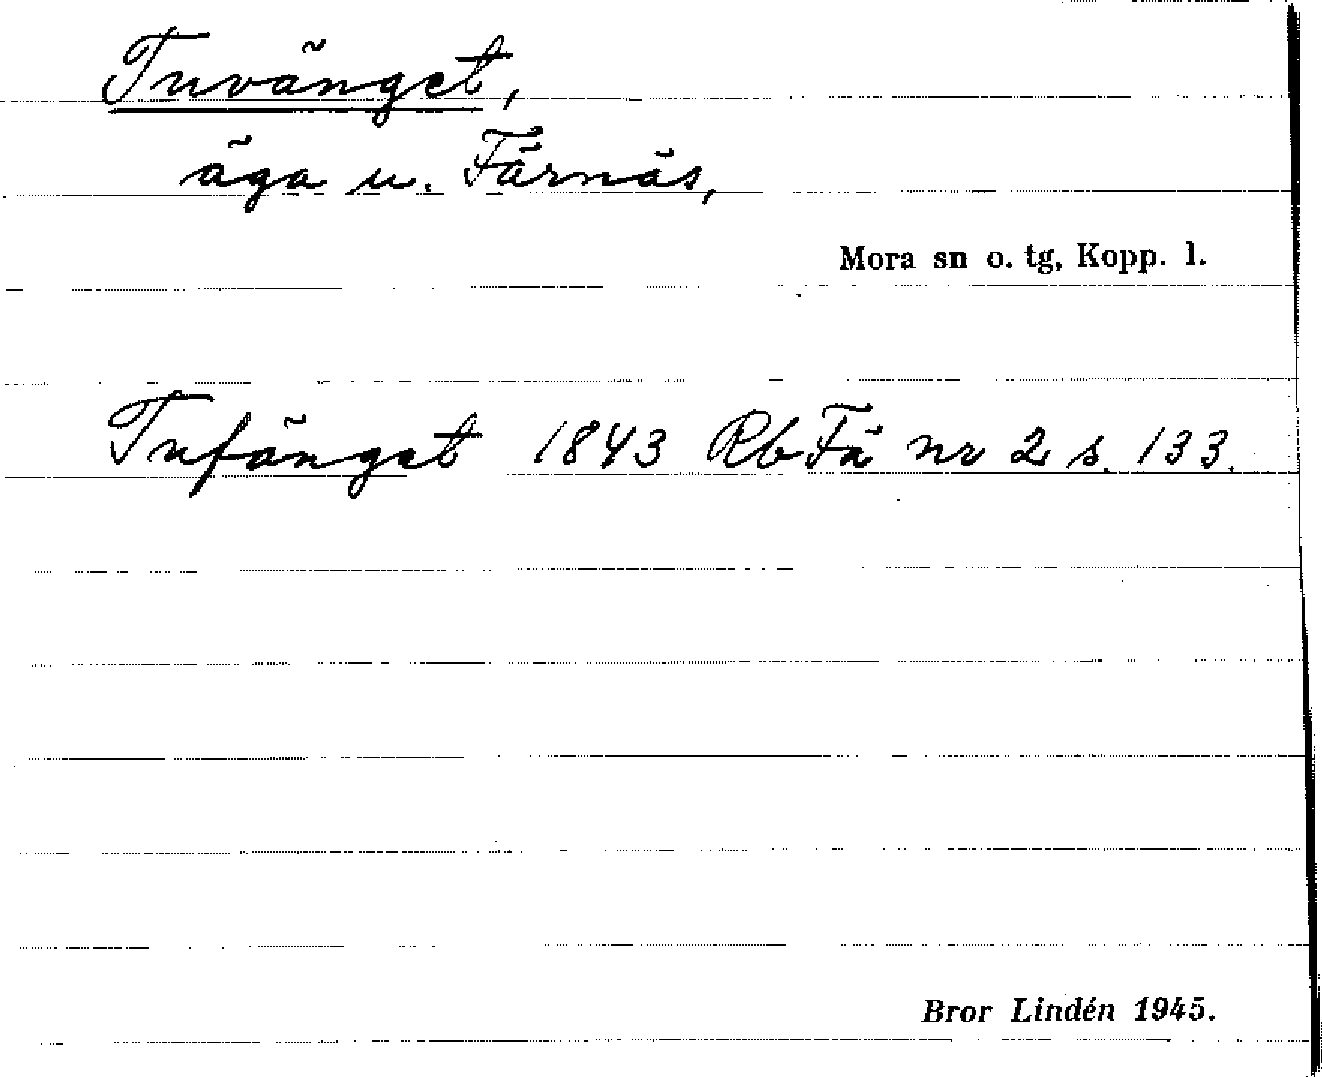 Tuvänget,
äga u. Färnäs,
Mora sn o. tg, Kopp. l.
Tufänget 1843 RbFä nr 2 s. 133.
Bror Lindén 1945.